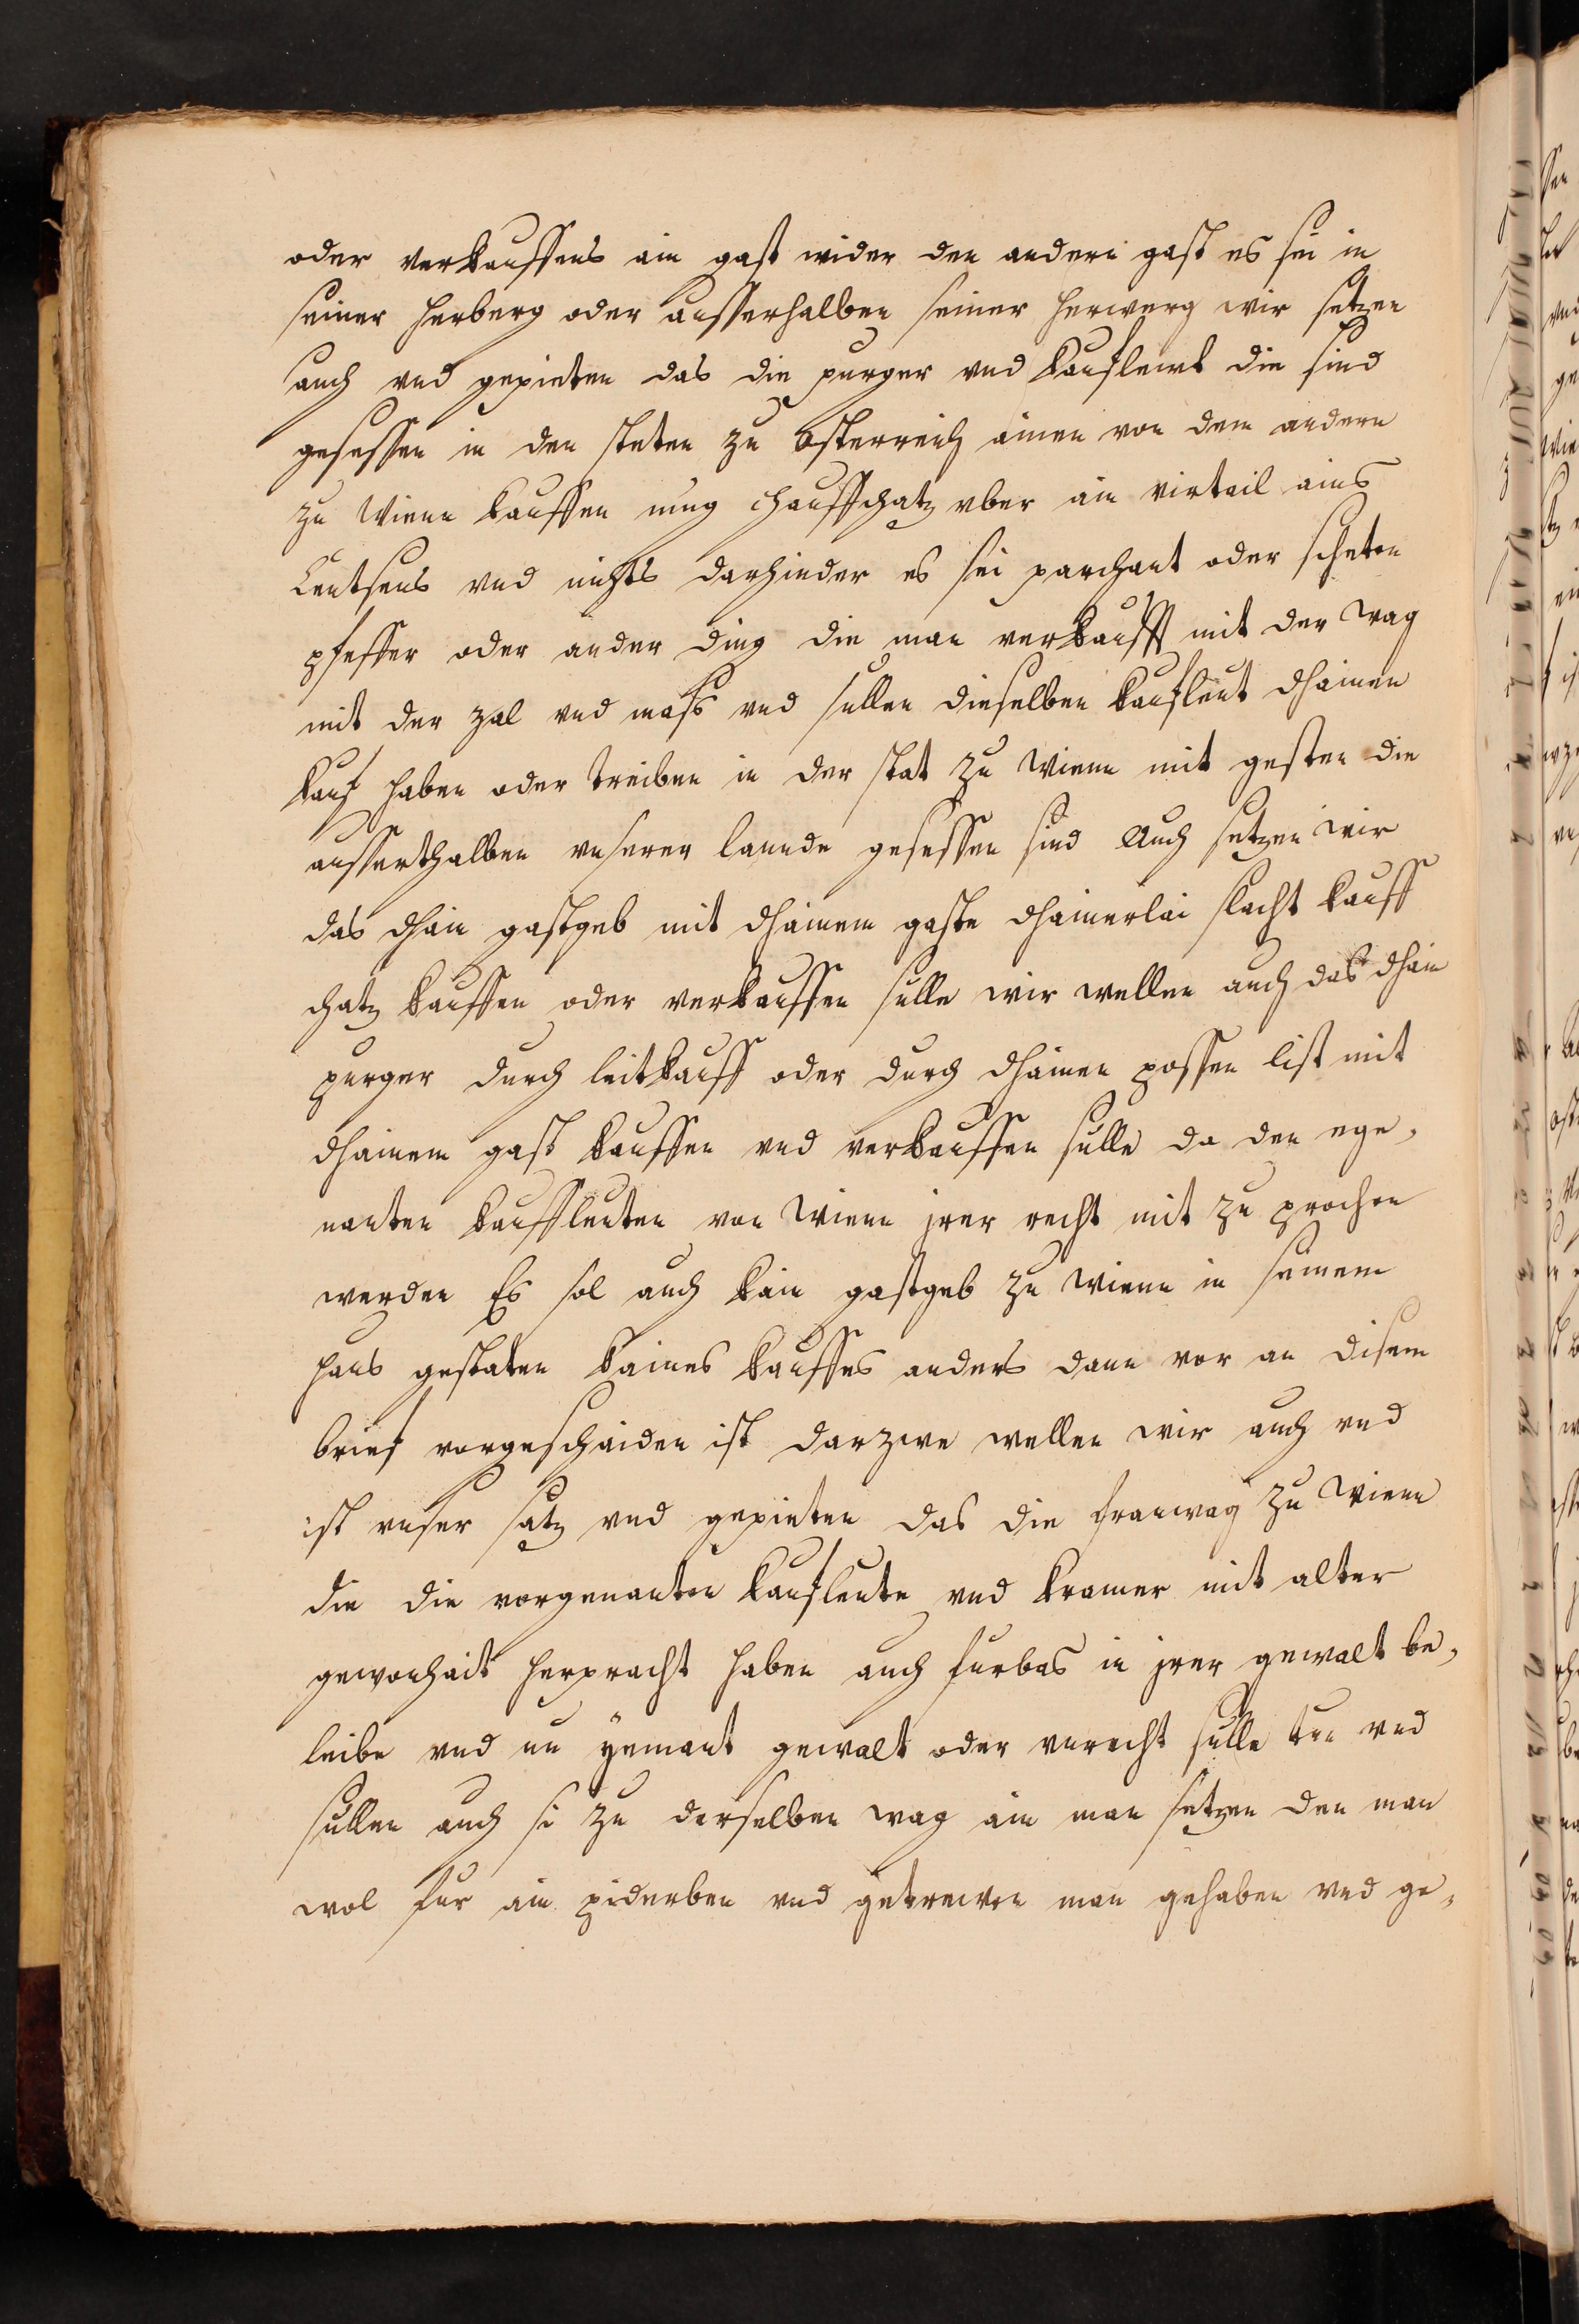 oder verkauffens ain gast wider den andern gast es sei in
seiner herberg oder ausserhalben seiner herwerg wir setzen
auch vnd gepieten das die purger vnd kauflewt die sind
gesessen in den steten zu Osterreich ainen von dem andern
zu Wienn kauffen mug chauffchatz vber ain virtail ains
Centsens vnd nichts darhinder es sei parchant oder scheter
pfeffer oder ander ding die man verkaufft mit der wag
mit der zal vnd mass vnd sullen dieselben kaufleut dhainen
kauf haben oder treiben in der stat zu Wienn mit gesten die
ausserthalben vnserer lannde gesessen sind Auch setzen wir
das dhain gastgeb mit dhainem gaste dhainerlai slacht kauff
chatz kauffen oder verkauffen sulle wir wellen auch das dhain
purger durch leitkauff oder durch dhainen possen list mit
dhainem gast kauffen vnd verkauffen sulle da den ege,
nanten kauffleuten von Wienn jrer recht mit zu prochen
werden Es sol auch kain gastgeb zu Wienn in seinem
haus gestaten kaines kauffes anders dann vor an disem
brief vorgeschaiden ist darzwe wellen wir auch vnd
ist vnser satz vnd gepieten das die franwag zu Wienn
die die vorgenanten kaufleute vnd kramer mit alter
gewonhait herpracht haben auch furbas in jrer gewalt be,
leibe vnd nu yemant gewalt oder vnrecht sulle tun vnd
sullen auch si zu derselben wag ain man setzen den man
wol fur ain piderben vnd getrewen man gehaben vnd ge,